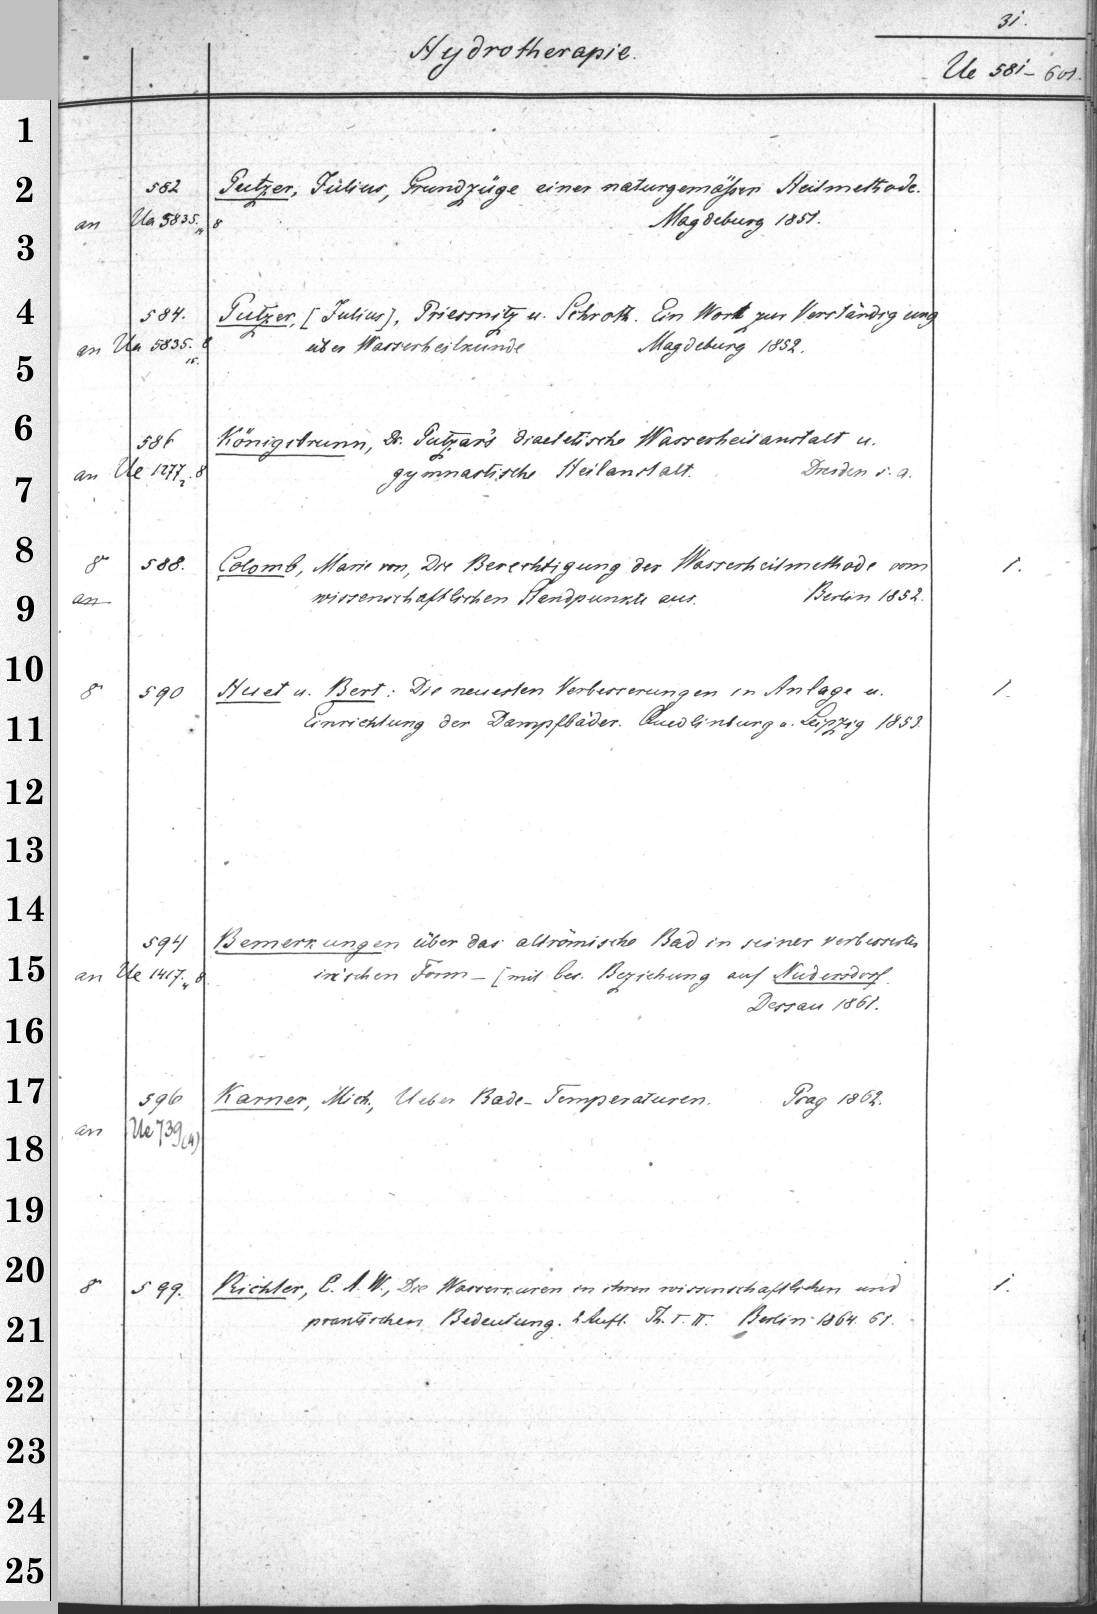 31.
Hydrotherapie.
Ue 581–601.
1
2 582 Putzar, Julius, Grundzüge einer naturgemäßen Heilmethode.
an Ua 5835. 14 8 Magdeburg 1851.
3
4 584. Putzar, [Julius], Priessnitz u. Schroth. Ein Wort zur Verständigung
an Ua 5835. 8 15. über Wasserheilkunde Magdeburg 1852.
5
6 586 Königsbrunn, Dr. Putzar's diaetetische Wasserheilanstalt u.
an Ue 1277 2. 8 gymnastische Heilanstalt. Dresden s. a.
7
8 8° 588. Colomb, Marie von, Die Berechtigung der Wasserheilmethode vom 1.
9 an wissenschaftlichen Standpunkte aus. Berlin 1852.
10 8° 590 Huet u. Bert: Die neuesten Verbesserungen in Anlage u. 1.
11 Einrichtung der Dampfbäder. Quedlinburg u. Leipzig 1853.
12
13
14
594 Bemerkungen über das altrömische Bad in seiner verbesserten
15 an Ue 1417 4 8 irischen Form – [mit bes. Beziehung auf Nudersdorf.
Dessau 1861.
16
17 596 Karner, Mich., Ueber Bade-Temperaturen. Prag 1862.
an Ue 739 (4)
18
19
20 8° 599. Richter, C. A. W., Die Wasserkuren in ihren wissenschaftlichen und 1.
21 praktischen Bedeutung. 2 Aufl. Th. I. II. Berlin 1864. 61.
22
23
24
25